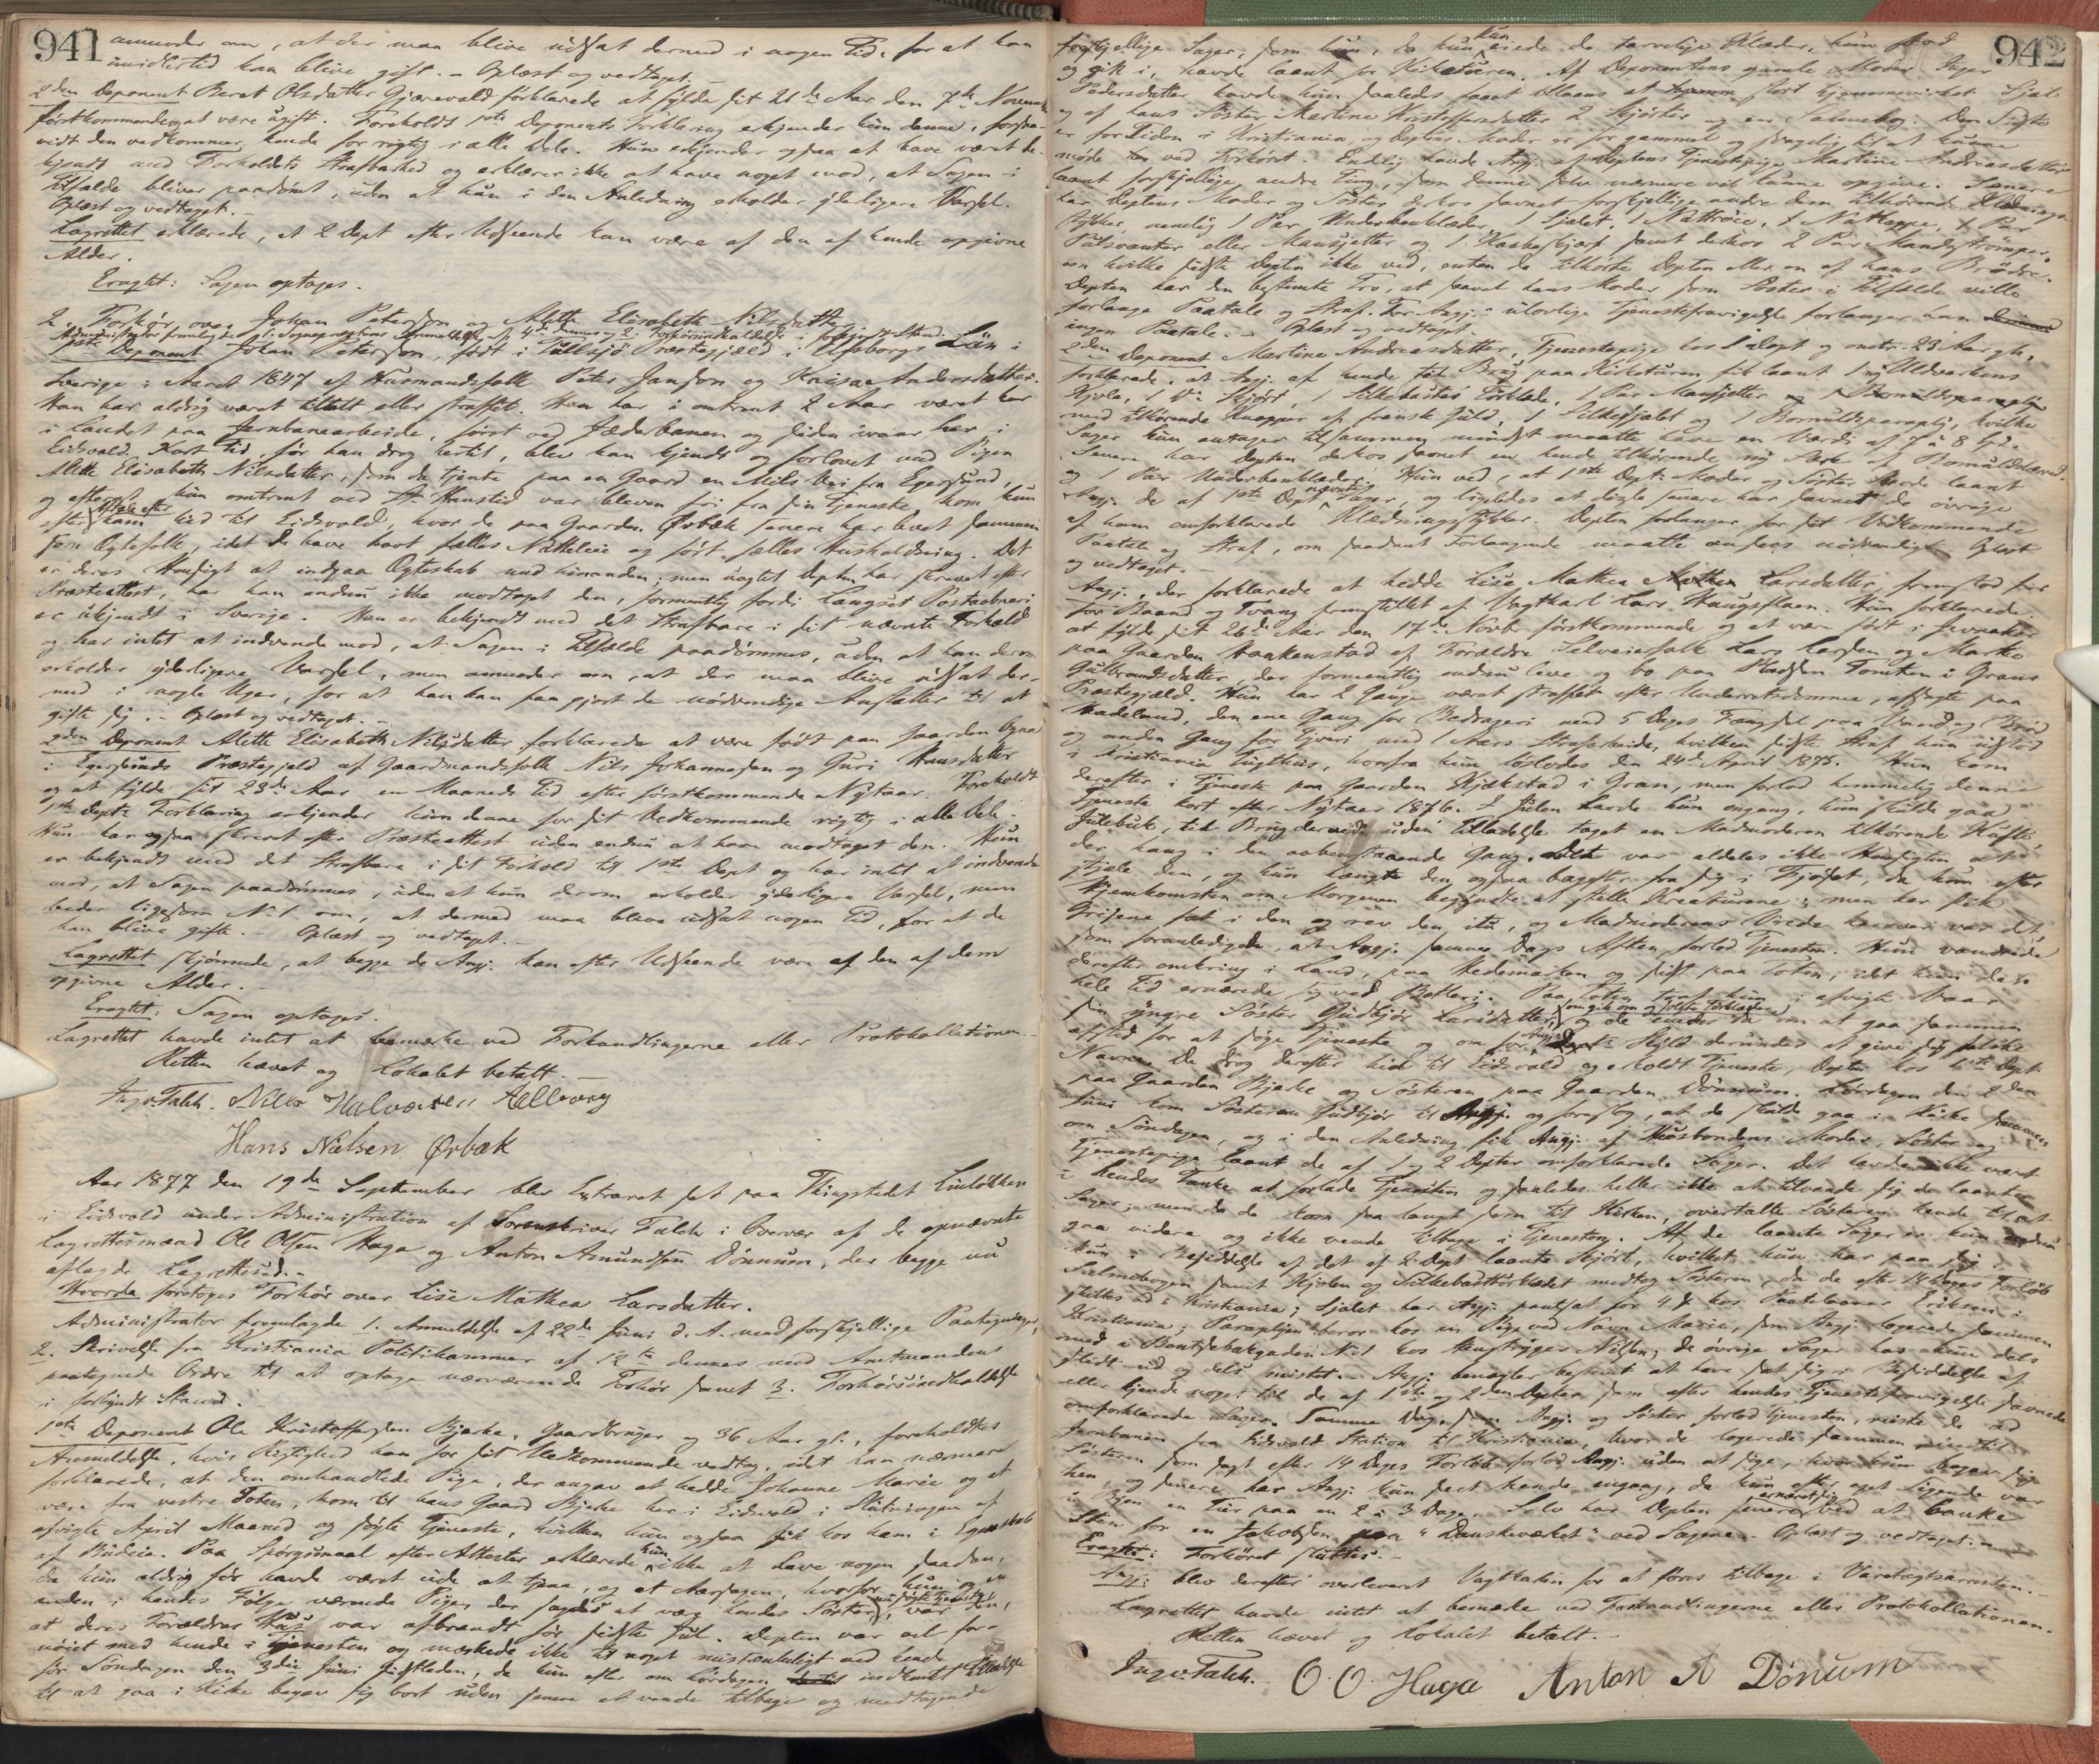 941
anmoder om, at der maa blive udsat dermed i nogen Tid, for at han
imidlertid kan blive gift. - Oplæst og vedtaget. -
2den Deponent Beret Olsdatter Gjærevold forklarede at fylde sit 21de Aar den 7de November
førstkommende og at være ugift. Foreholdt 1ste Deponents Forklaring erkjender hun denne, forsaa-
vidt den vedkommer hende for rigtig i alle Dele. Hun erkjender ogsaa at have været be-
kjendt med Forholdets Strafbarhed og erklærer ikke at have noget imod, at Sagen i
Tilfælde bliver paadømt, uden at hun i den Anledning erholder yderligere Varsel.
Oplæst og vedtaget. -
Lagrettet erklærede, at 2 Dept efter Udseende kan være af den af hende opgivne
Alder.
Eragtet: Sagen optages.
2. Forhør over Johan Peterson og Alette Elisabeth Nilsdatter
Administrator fremlagde 1. Sognepræstens Anmeldelse af 4de dennes og 2. Forhørsindkaldelse i forkyndt Stand.
1ste Deponent Johan Peterson, født i Tullsjö Præstegjæld i Elfsborgs Län i
Sverige i Aaret 1847 af Husmandsfolk Peter Janson og Kaisa Andersdatter.
Han har aldrig været tiltalt eller straffet. Han har i omtrent 2 Aar været her
i Landet paa Jernbanearbeide, først ved Jæderbanen og siden ivaar her i
Eidsvold. Kort Tid, før han drog hertil, blev han kjendt og forlovet med Pigen
Alette Elisabeth Nilsdatter, som da tjente paa en Gaard en Miils Vei fra Egersund,
og efterat hun omtrent ved St. Hanstid var bleven fri fra sin Tjeneste kom hun
efter Aftale efter ham hid til Eidsvold, hvor de paa Gaarden Ørbæk senere har levet sammen
som Ægtefolk, idet de have havt fælles Natteleie og ført fælles Husholdning. Det
er deres Hensigt at indgaa Ægteskab med hinanden; men uagtet Depten har skrevet efter
Præsteattest, har han endnu ikke modtaget den, formentlig fordi Langset Postaabneri
er ukjendt i Sverige. Han er bekjendt med det Strafbare i sit nævnte Forhold
og har intet at indvende mod, at Sagen i Tilfælde paadømmes, uden at han derom
erholder yderligere Varsel, men anmoder om, at der maa blive udsat der-
med i nogle Uger, for at han kan faa gjort de nødvendige Anstalter til at
gifte sig. - Oplæst og vedtaget. -
2den Deponent Alette Elisabeth Nilsdatter forklarede at være født paa Gaarden Ogna
i Egersunds Præstegjæld af Gaardmandsfolk Nils Johannesen og Guri Hansdatter
og at fylde sit 23de Aar en Maaneds Tid efter førstkommende Nytaar. Foreholdt
1ste Depts Forklaring erkjender hun denne for sit Vedkommende rigtig i alle Dele.
Hun har ogsaa skrevet efter Præsteattest uden endnu at have modtaget den. Hun
er bekjendt med det Strafbare i sit Forhold til 1ste Dept og har intet at indvende
mod, at Sagen paadømmes, uden at hun derom erholder yderligere Varsel, men
beder ligesom No 1 om, at dermed maa blive udsat nogen Tid, for at de
kan blive gifte. - Oplæst og vedtaget. -
Lagrettet skjønnede, at begge de Angj. kan efter Udseende være af den af dem
opgivne Alder.
Eragtet: Sagen optages.
Lagrettet havde intet at bemærke ved Forhandlingerne eller Protokollationen.
Retten hævet og Lokalet betalt.
Ingv. Falch. Nills Halvorsen
Hans Nielsen Ørbæk
Aar 1877 den 19de September blev Extraret sat paa Thingstedet Lundløkken
i Eidsvold under Administration af Sorenskriver Falch i Overvær af de opnævnte
Lagrettesmænd Ole Olsen Haga og Anton Amundsen Dønnum, der begge nu
aflagde Lagrettesed. -
Hvorda foretoges Forhør over Lise Mathea Larsdatter.
Administrator fremlagde 1. Anmeldelse af 22de Juni d. A. med forskjellige Paategninger,
2. Skrivelse fra Kristiania Politikammer af 12te dennes med Amtmandens
paategnede Ordre til at optage nærværende Forhør samt 3. Forhørsindkaldelse
i forkyndt Stand.
1ste Deponent Ole Kristoffersen Bjerke, Gaardbruger og 36 Aar gl., foreholdtes
Anmeldelse, hvis Rigtighed han for sit Vedkommende vedtog, idet han nærmere
forklarede, at den omhandlede Pige, der angav at hedde Johanne Marie og at
være fra vestre Toten, kom til hans Gaard Bjerke her i Eidsvold i Slutningen af
afvigte April Maaned og søgte Tjeneste, hvilken hun ogsaa fik hos ham i Egenskab
af Budeie. Paa Spørgsmaal efter Attester erklærede hun ikke at have nogen saadan,
da hun aldrig før havde været ude at tjene, og at Aarsagen, hvorfor hun og en
anden i hendes Følge værende Pige, der sagdes at være hendes Søster, nu søgte Tjeneste, var den,
at deres Forældres Hus var afbrændt før sidste Jul. Depten var vel for-
nøiet med hende i Tjenesten og mærkede ikke til noget mistænkeligt ved hende
før Søndagen den 3die Juni sidstleden, da hun efter om Lørdagen indhentet Tilladelse
til at gaa i Kirke begav sig bort uden senere at vende tilbage og medtagende
942
forskjellige Sager, som hun, da hun kun eiede de tarvelige Klæder, hun stod
og gik i, havde laant for Kirketuren. Af Deponentens gamle Moder Inger
Pedersdatter havde hun saaledes faaet tillaans et stort hjemmevirket Sjal
og af hans Søster Martine Kristoffersdatter 2 Skjørter og en Salmebog. Den Sidste
er for Tiden i Kristiania og Deptens Moder er for gammel og svagelig til at kunne
møde her ved Forhøret. Endelig havde Angj. af Deptens Tjenestepige Martine Andreasdatter
laant forskjellige andre Ting, som denne selv nærmere vil kunne opgive. Senere
har Deptens Moder og Søster derhos savnet forskjellige andre dem tilhørende Klædnings-
stykker, nemlig 1 Par Underbenklæder, 1 Sjalet, 1 Nattrøie, 1 Natkappe, 1 Par
Pulsvanter eller Mansjetter og 1 Haskeskjærf samt derhos 2 Par Mandsstrømper,
om hvilke sidste Depten ikke ved, enten de tilhørte Depten eller en af hans Brødre.
Depten har den bestemte Tro, at saavel hans Moder som Søster i Tilfælde ville
forlange Paatale og Straf. For Angj.s ulovlige Tjenestefravigelse forlanger han
ingen Paatale. - Oplæst og vedtaget.
2den Deponent Martine Andreasdatter, Tjenestepige hos 1ste Dept og omtr. 23 Aar gl.,
forklarede, at Angj. af hende til Brug paa Kirketuren fik laant 1 ny Uldværkens
Kjole, 1 Do Skjørt, 1 Silkebastes Forklæde, 1 Par Mansjetter
med tilhørende Knapper af fransk Guld, 1 Silkesjalet og 1 Bomuldsparaply, hvilke
Sager hun antager tilsammen mindst maatte have en Værdi af 7 à 8 Spd.
Senere har Depten derhos savnet en hende tilhørende ny Særk af Bomuldslærred
og 2 Par Underbenklæder. Hun ved, at 1ste Depts Moder og Søster havde laant
Angj. de af 1ste Dept nævnte Sager, og ligeledes at disse senere har savnet de øvrige
af ham omforklarede Klædningsstykker. Depten forlanger for sit Vedkommende
Paatale og Straf, om saadant Forlangende maatte ansees nødvendigt. Oplæst
og vedtaget. -
Angj., der forklarede at hedde Lise Mathea Larsdatter, fremstod fri
for Baand og Tvang fremstillet af Vagtkarl Lars Haugsflaen. Hun forklarede
at fylde sit 26de Aar den 17de Novbr førstkommende og at være født i Jevnaker
paa Gaarden Haakenstad af Forældre Selveierfolk Lars Larsen og Marthe
Gulbrandsdatter, der formentlig endnu leve og bo paa Pladsen Tomten i Grans
Præstegjæld. Hun har 2 Gange været straffet efter Underretsdomme, afsagte paa
Hadeland, den ene Gang for Bedrageri med 5 Dages Fængsel paa Vand og Brød
og anden Gang for Tyveri med 1 Aars Strafarbeide, hvilken sidste Straf hun udstod
i Kristiania Tugthus, hvorfra hun løslodes den 24de April 1875. Hun kom
derefter i Tjeneste paa Gaarden Hjækstad i Gran, men forlod hemmelig denne
Tjeneste kort efter Nytaar 1876. I Julen havde hun engang, hun skulde gaa
Julebuk, til Brug derved uden Tilladelse taget en Madmoderen tilhørende Kofte,
der hang i den aabenstaaende Gang. Det var aldeles ikke Hensigten at
stjæle den, og hun hængte den ogsaa bagefter fra sig i Fjøset, da hun efter
Hjemkomsten om Morgenen begyndte at stelle Kreaturene; men her fik
Grisene fat i den og rev den itu, og Madmoderens Vrede herover var det,
som foranledigede, at Angj. samme Dags Aften forlod Tjenesten. Hun vandrede
derefter omkring i Land, paa Hedemarken og sidst paa Toten, idet hun den
hele Tid ernærede sig ved Betleri. Paa Toten traf hun i afvigte Vaar
sin yngre Søster Gudbjør Larsdatter, som gik om og solgte Forklæder, og de enedes da om at gaa sammen
afsted for at søge Tjeneste og om for Angj.s Skyld derunder at give sig falske
Navne. De drog derefter hid til Eidsvold og erholdt Tjeneste, Depten hos 1ste Dept
paa Gaarden Bjerke og Søsteren paa Gaarden Dønnum. Lørdagen den 2den
Juni kom Søsteren Gudbjør til Angj. og foreslog, at de skulde gaa i Kirke sammen
om Søndagen, og i den Anledning fik Angj. af Husbondens Moder, Søster og
Tjenestepige laant de af 1 og 2 Depter omforklarede Sager. Det havde ikke været
i hendes Tanke at forlade Tjenesten og saaledes heller ikke at tilvende sig de laante
Sager; men da de kom saa langt som til Kirken, overtalte Søsteren hende til at
gaa videre og ikke vende tilbage i Tjenesten. Af de laante Sager er hun endnu
kun i Besiddelse af det af 2 Dept laante Skjørt, hvilket hun har paa sig.
Salmebogen samt Kjolen og Silkebastforklædet medtog Søsteren, da de efter 14 Dages Forløb
skiltes ad i Kristiania; Sjalet har Angj. pantsat for 4 ₰ hos Pantelaaner Eriksen i
Kristiania; Paraplyen beror hos en Pige ved Navn Marie, som Angj. logerede sammen
med i Bentsebakgaden No 1 hos Murstryger Nilsen; de øvrige Sager har hun dels
slidt ud og dels mistet. - Angj. benægter bestemt at have sat sig i Besiddelse af
eller kjende noget til de af 1ste og 2den Depten som efter hendes Tjenestefravigelse savnede
omforklarede Sager. Samme Dag, som Angj. og Søster forlod Tjenesten, reiste de ad
Jernbanen fra Eidsvold Station til Kristiania, hvor de logerede sammen indtil
Søsteren som sagt efter 14 Dages Forløb forlod Angj. uden at sige, hvor hun begav sig
hen, og senere har Angj. kun seet hende engang, da hun efter eget Sigende var
i Byen en Tur paa en 2 à 3 Dage. Selv har Depten senere ernæret sig ved at banke
Sten for en Jakobsen paa "Danskvæket" ved Sagene. Oplæst og vedtaget. -
Eragtet: Forhøret sluttes. -
Angj. blev derefter overleveret Vagtkarlen for at føres tilbage i Varetægtsarresten. -
Lagrettet havde intet at bemærke ved Forhandlingerne eller Protokollationen. -
Retten hævet og Lokalet betalt. -
Ingv. Falch. O. O. Haga Anton A Dönum